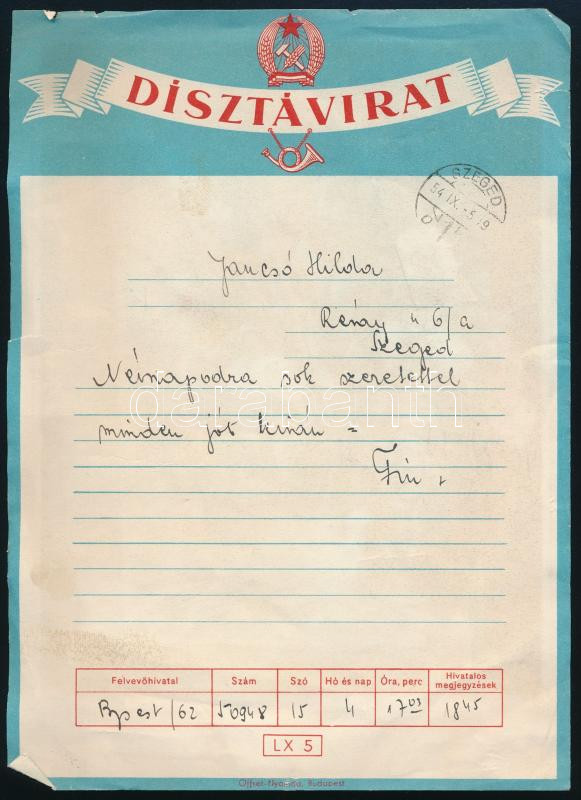 DÍSZTÁVIRAT
SZEGED
54 IX. -5.19
Jancsó Hilda
6/a
Szeged
Névnapodra sok szeretettel
minden jót kíván =
darabanth
Felvevőhivatal Szám Szó Hó és nap Óra, perc Hivatalos megjegyzések
Bpest/62 50948 15 4 17 03 1845
LX 5
Offset-Nyomda, Budapest